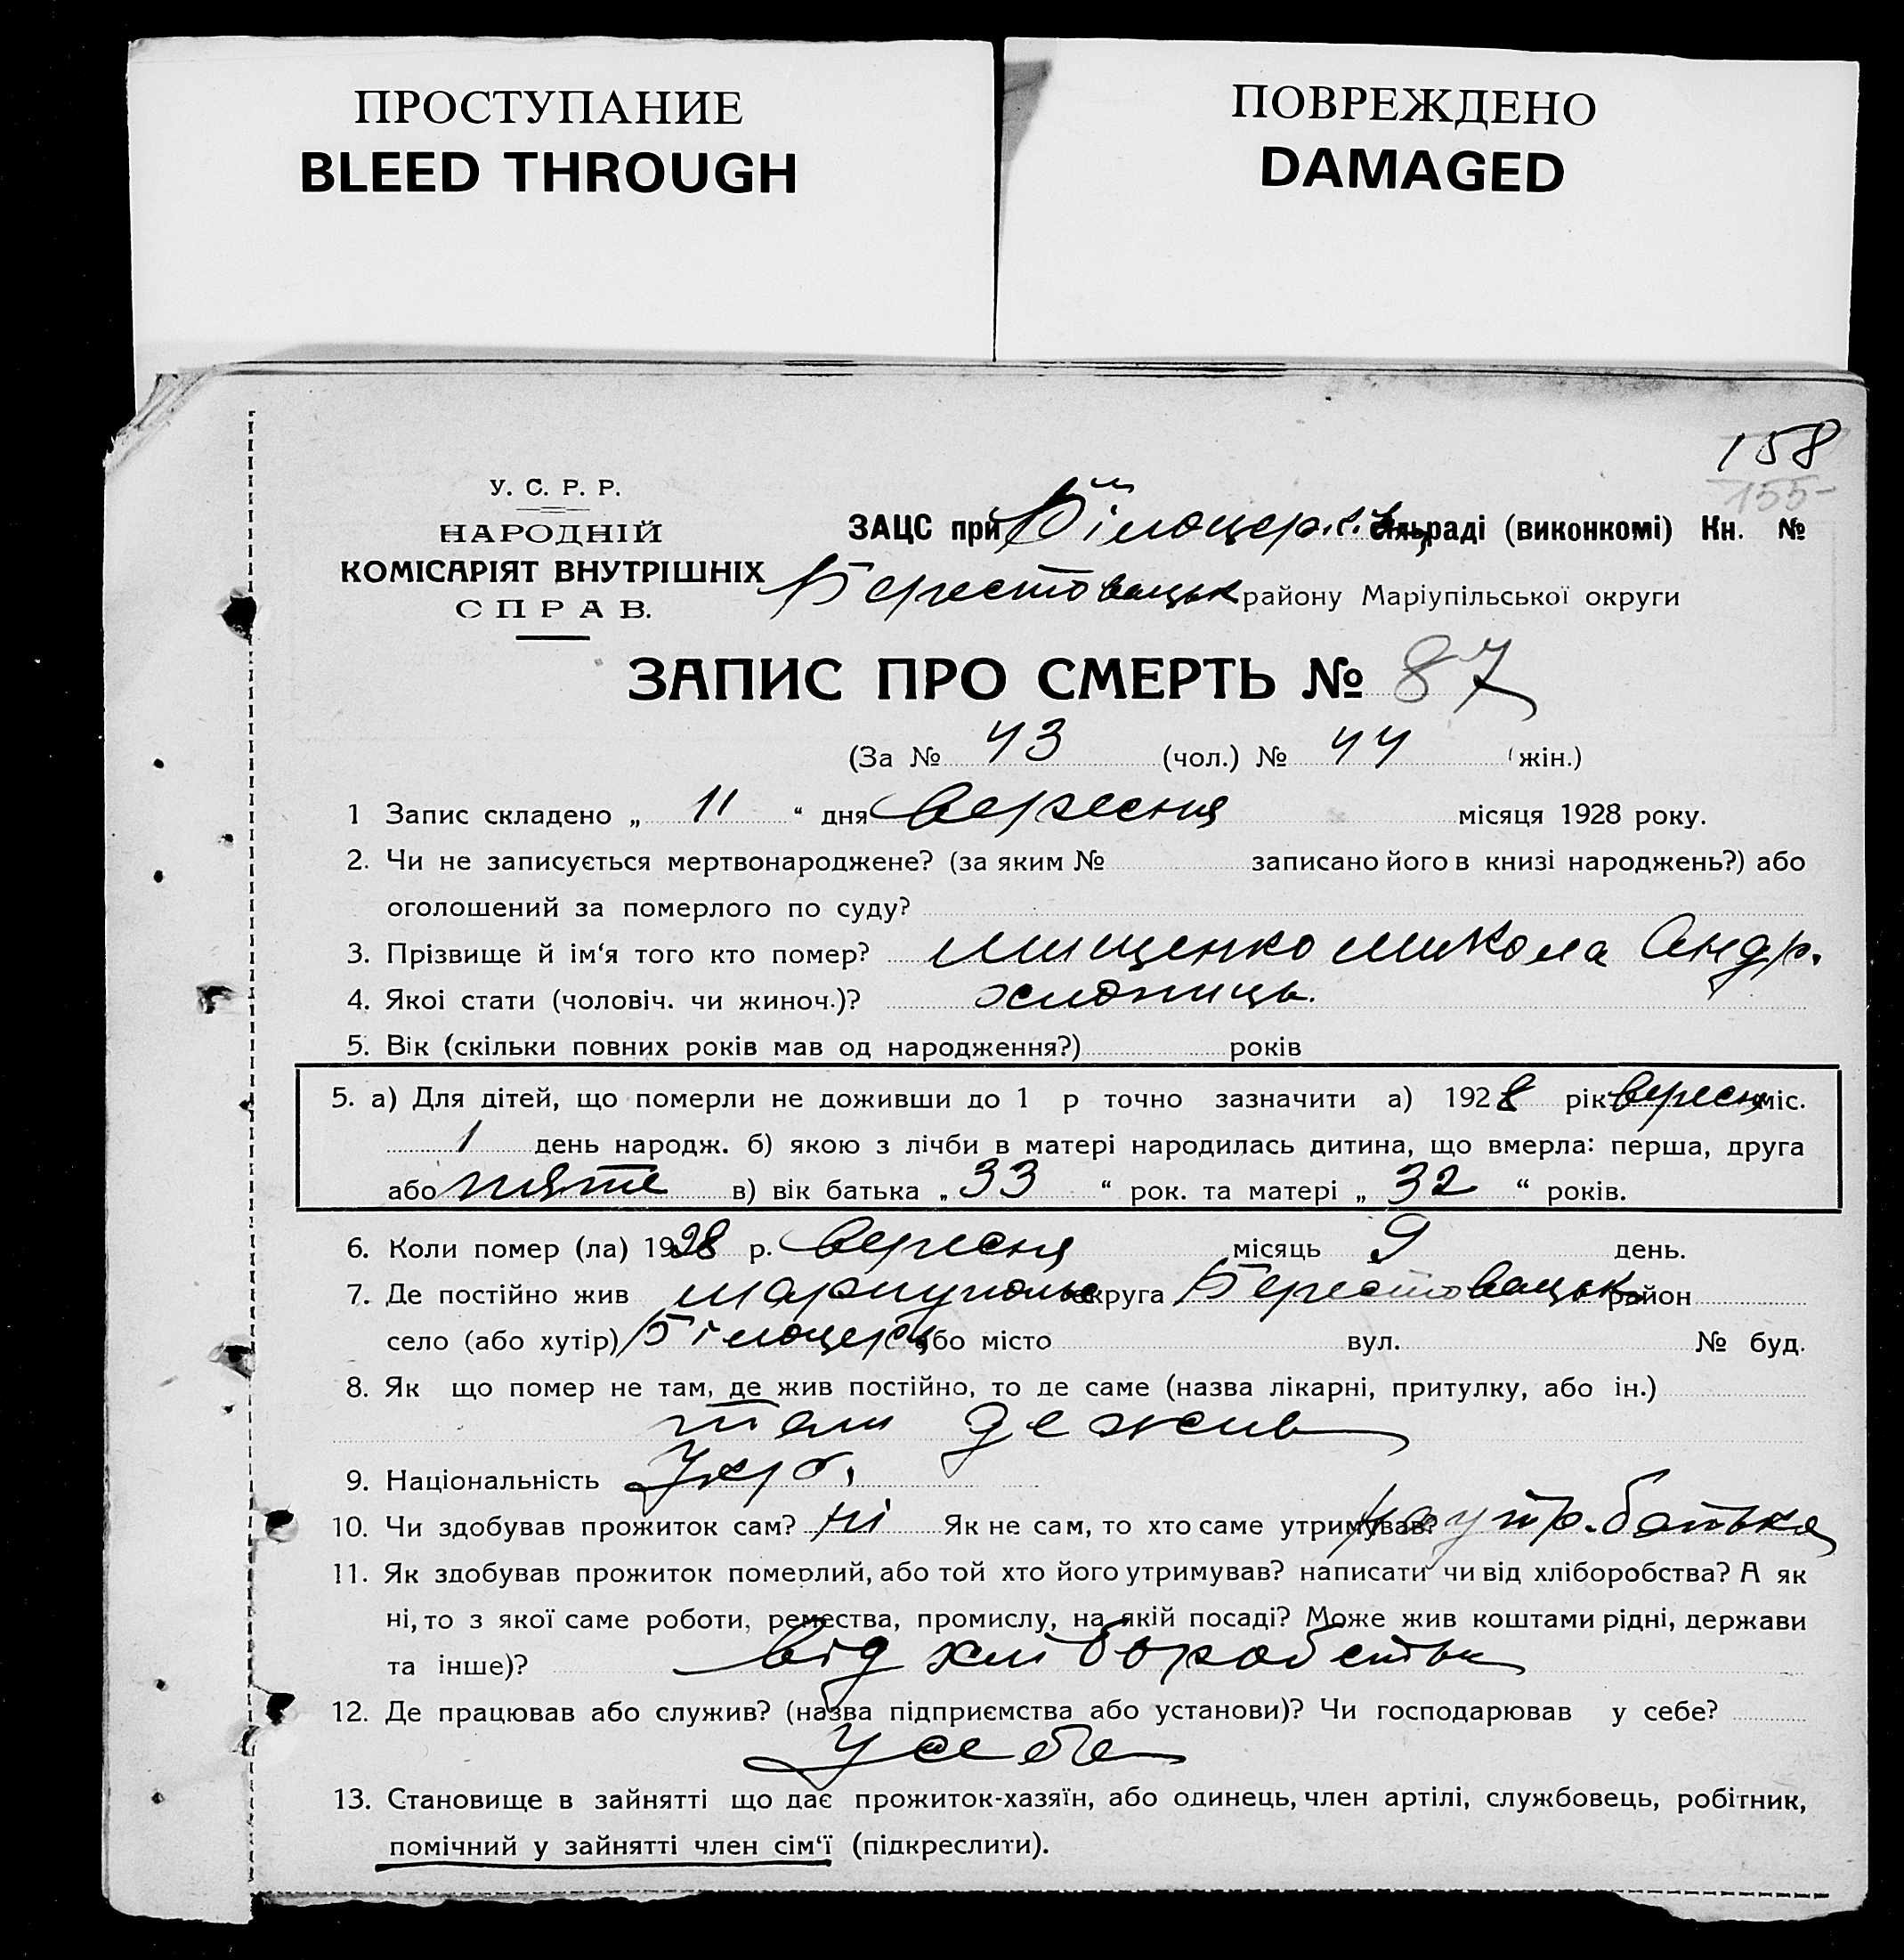 ПРОСТУПАНИЕ
BLEED THROUGH
ПОВРЕЖДЕНО
DAMAGED
158
155
У. С. Р. Р.
НАРОДНІЙ
КОМІСАРІЯТ ВНУТРІШНІХ
СПРАВ.
ЗАЦС при Білоцерків. сільраді (виконкомі) Кн. №
Берестовецьк району Маріупільської округи
ЗАПИС ПРО СМЕРТЬ № 87
(За № 43 (чол.) № 44 (жін.)
1 Запис складено „ 11 “ дня вересня місяця 1928 року.
2. Чи не записується мертвонароджене? (за яким № записано його в книзі народжень?) або
оголошений за померлого по суду?
3. Прізвище й ім‘я того кто помер? Мищенко Микола Андр.
4. Якоі стати (чоловіч. чи жиноч.)? хлопчиць.
5. Вік (скільки повних років мав од народження?) років
5. а) Для дітей, що померли не доживши до 1 р точно зазначити а) 1928 рік вересн міс.
1 день народж. б) якою з лічби в матері народилась дитина, що вмерла: перша, друга
або пяте в) вік батька „ 33 “ рок. та матері „ 32 “ років.
6. Коли помер (ла) 1928 р. вересня місяць 9 день.
7. Де постійно жив Мариупольс округа Берестовецьк район
село (або хутір) Білоцерк або місто вул. № буд.
8. Як що помер не там, де жив постійно, то де саме (назва лікарні, притулку, або ін.)
там де жив
9. Національність Укр.
10. Чи здобував прожиток сам? ні Як не сам, то хто саме утримував? на утр. батька
11. Як здобував прожиток померлий, або той хто його утримував? написати чи від хліборобства? А як
ні, то з якої саме роботи, ремества, промислу, на якій посаді? Може жив коштами рідні, держави
та інше)? від хлиборобства
12. Де працював або служив? (назва підприємства або установи)? Чи господарював у себе?
У себе
13. Становище в зайнятті що дає прожиток-хазяїн, або одинець, член артілі, службовець, робітник,
помічний у зайнятті член сім‘ї (підкреслити).